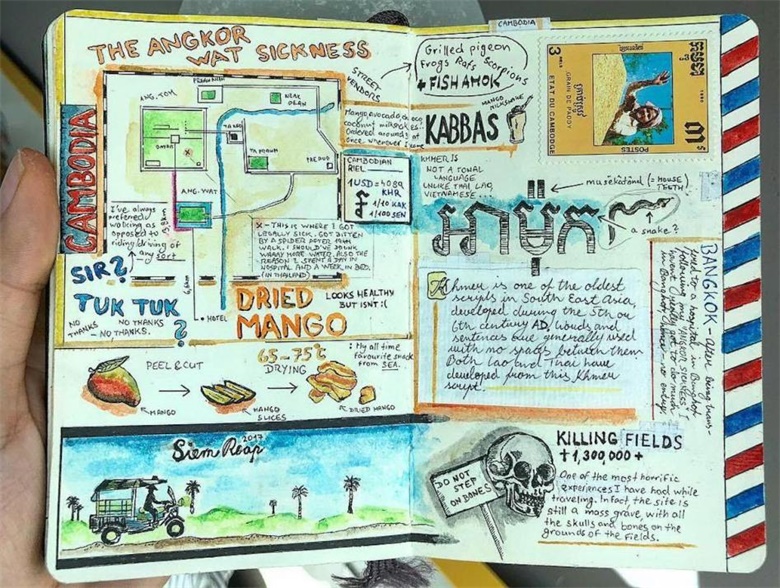 THE ANGKOR
WAT SICKNESS
CAMBODIA
ANG. TOM
BAYAN
NEAK
PEAN
TA KEO
TA PROHM
ANG-WAT
I've always
preferred
walking as
opposed to
riding/driving of
any sort
6,5km
HOTEL
X - THIS IS WHERE I GOT
LEGALLY SICK. GOT BITTEN
BY A SPIDER AFTER 19KM
WALK. I SHOULD'VE DRUNK
WAAAY MORE WATER. ALSO THE
REASON I SPENT A DAY IN
HOSPITAL AND A WEEK IN BED.
(IN THAILAND)
SIR?
TUK TUK
?
NO
THANKS
NO THANKS
- NO THANKS.
DRIED
MANGO
LOOKS HEALTHY
BUT ISNT :(
CAMBODIAN
RIEL
1USD = 4089
KHR
1/10 KAK
1/100 SEN
PEEL & CUT
65-75°C
DRYING
: My all time
favourite snack
from SEA.
MANGO
MANGO
SLICES
DRIED MANGO
Siem Reap
2017
STREET
VENDORS
Grilled pigeon
Frogs Rats Scorpions
+ FISH AMOK
CAMBODIA
KABBAS
MANGO
MILKSHAKE
3
RIELS
GRAIN DE PADDY
ETAT DU CAMBODGE
POSTES
KHMER IS
NOT A TONAL
LANGUAGE
UNLIKE THAI, LAO,
VIETNAMESE...
musekatônd (= MOUSE
TEETH)
អាម៉ុក
a snake?
Khmer is one of the oldest
scripts in South East Asia,
developed during the 5th or
6th century AD. Words and
sentences are generally used
with no spaces between them
Both Lao and Thai have
developed from this Khmer
script.
BANGKOK - After being trans-
fered to a hospital in Bangkok
following my "ANGKOR SICKNESS"
DO NOT
STEP
ON BONES
KILLING FIELDS
✝1,300,000+
One of the most horrific
experiences I have had while
traveling. Infact the site is
still a mass grave, with all
the skulls and bones on the
grounds of the fields.